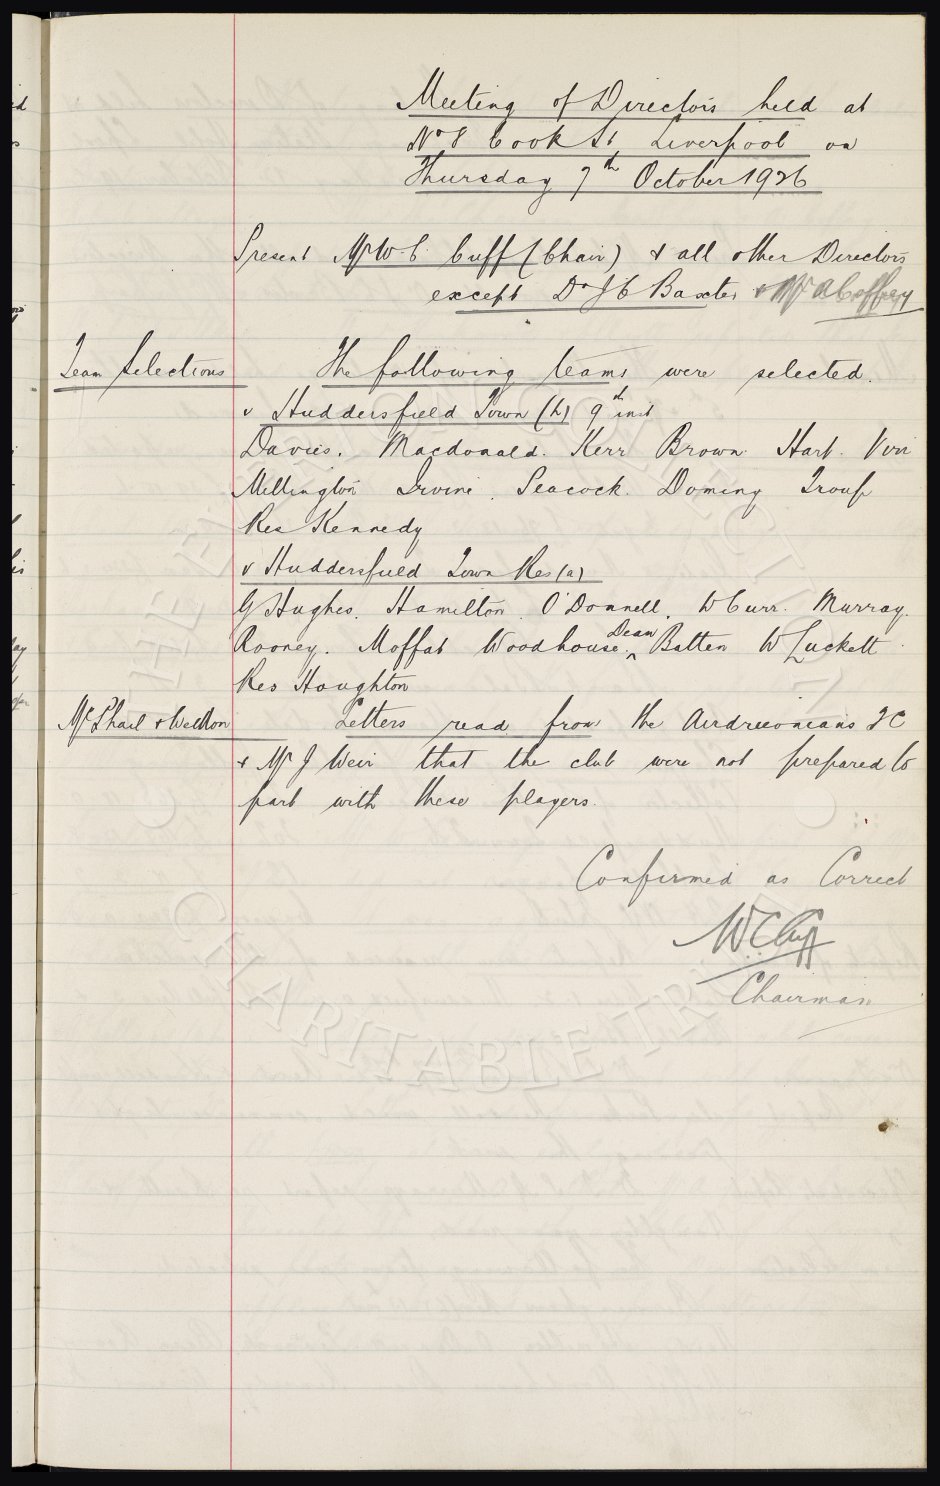 Meeting of Directors held at
No 8 Cook St, Liverpool on
Thursday 7th October 1926
Present Mr W. C. Cuff (Chair) & all other Directors
except Dr J C Baxter & Mr A Coffey
Team Selections The following teams were selected.
v Huddersfield Town (h) 9th inst
Davies. Macdonald. Kerr Brown Hart. Virr
Millington Irvine. Peacock. Dominy Troup
Res Kennedy
v Huddersfield Town Res (a)
G Hughes. Hamilton. O'Donnell. W Curr. Murray.
Rooney. Moffat Woodhouse. Dean Batten W Luckett
Res Houghton
McPhail & Weldon Letters read from the Airdrieonians F C
& Mr J Weir that the club were not prepared to
part with these players.
Confirmed as Correct
W. C. Cuff
Chairman
CHARITABLE TRUST